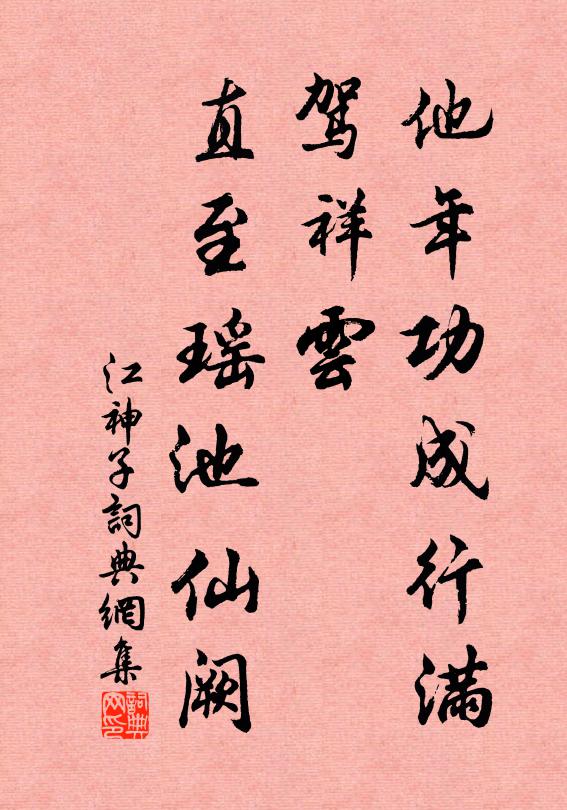 他年功成行满
驾祥雲
直至瑶池仙阙
江神子詞典網集
詞典网印